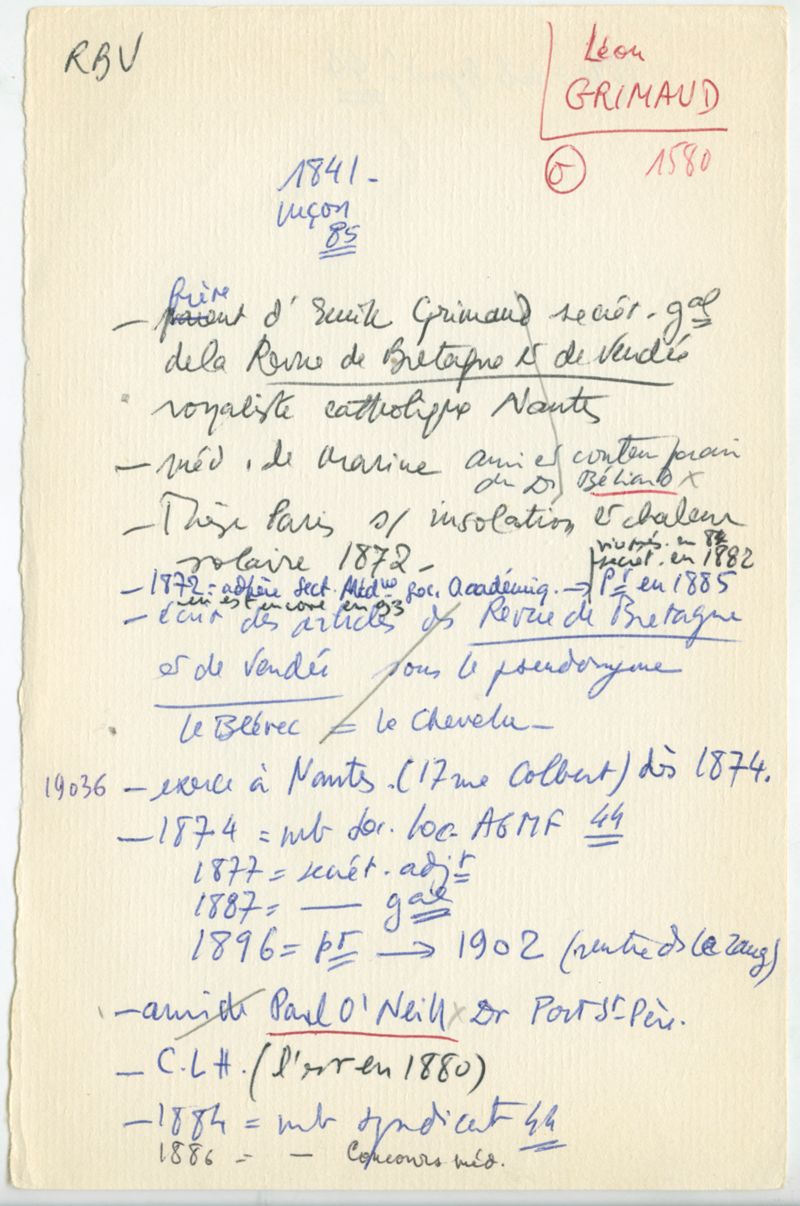 RBV
Léon
GRIMAUD
1580
1841-
Luçon
85
frère
— parent d'Emile Grimaud secrét. gal
de la Revue de Bretagne et de Vendée
royaliste catholique Nantes
— méd. de marine ami et contemporain
du Dr Béliard x
— Thèse Paris s/ insolation et chaleur
solaire 1872 -
secrét. en 1882
— 1872 = adhère sect. Médne Soc. Académiq. → Pt en 1885
en est encore en 93
— écrit des articles ds Revue de Bretagne
et de Vendée sous le pseudonyme
le Blévec = le Chevelu —
19036 — exerce à Nantes. (17 rue Colbert) dès 1874.
— 1874 = mb Soc. loc. AGMF 44
1877 = secrét. adjt
1887 = — gal
1896 = pt → 1902 (rentre ds le rang)
— ami de Paul O'Neill x Dr Port St-Père.
— C.L.H. (l'est en 1880)
— 1884 = mb syndicat 44
1886 = — Concours méd.